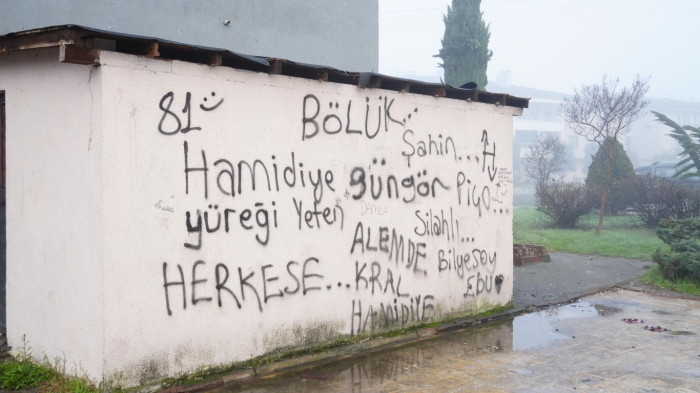 81 BÖLÜK...
Şahin...
Hamidiye güngör PİÇO...
yüreği Yeten Silahlı...
ALEMDE Bilgesoy
HERKESE... KRAL EBU
HAMİDİYE